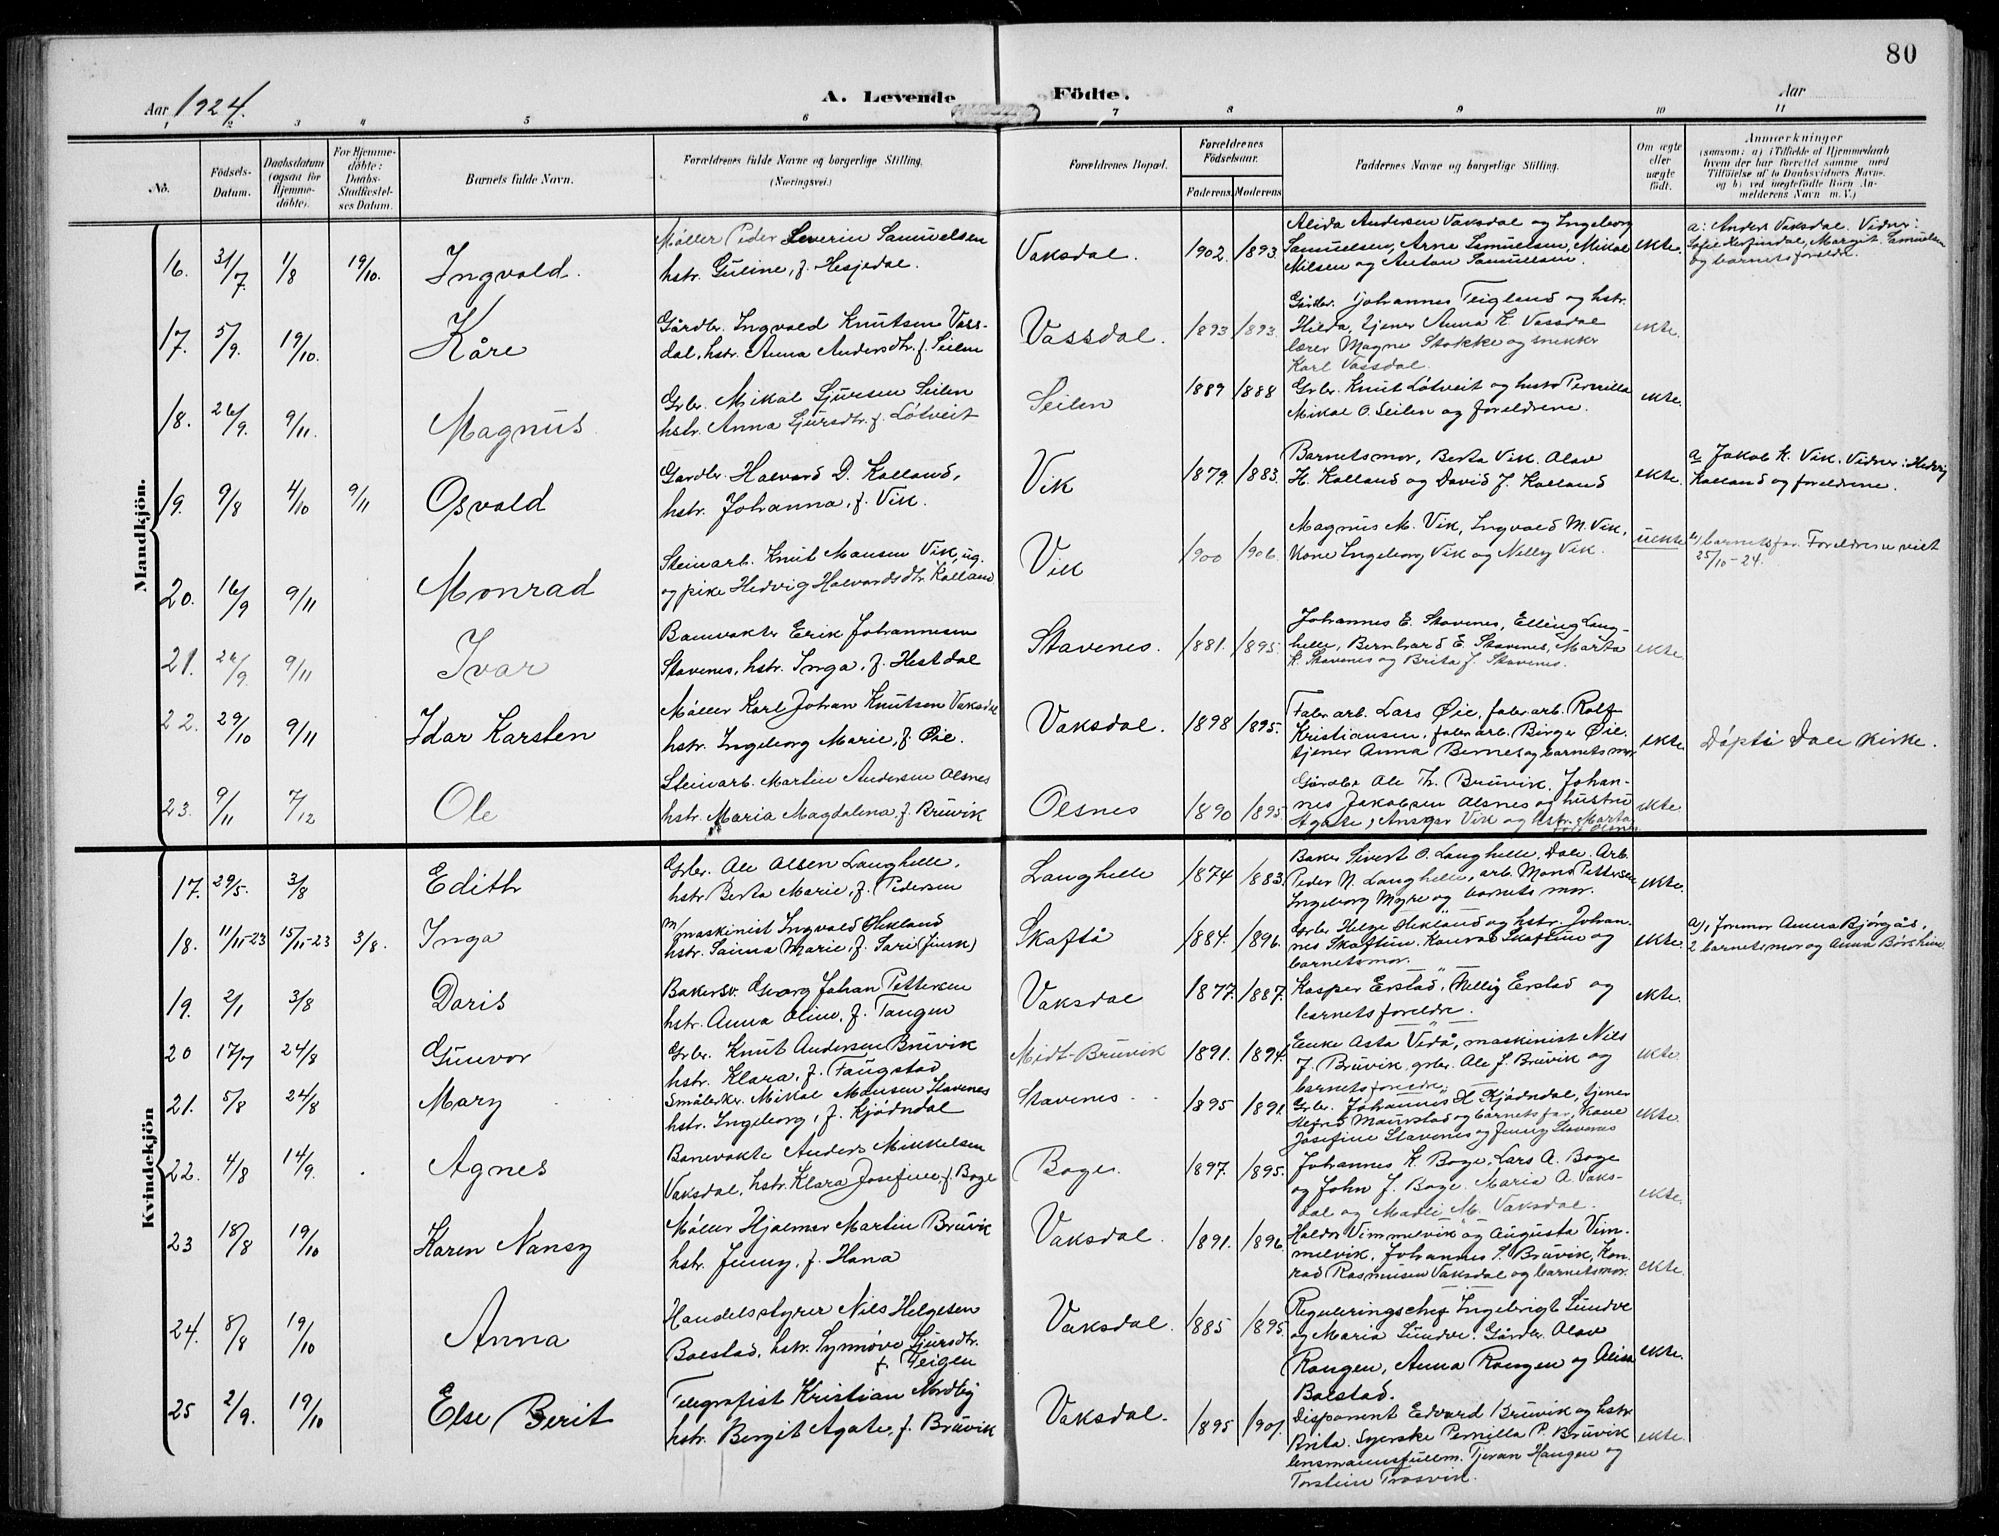 80
Aar 1924.
A. Levende Födte.
Aar
1 2 3 4 5 6 7 8 9 10 11
No.
Födsels-Datum.
Daabsdatum (ogsaa for Hjemme-döbte).
For Hjemme-döbte: Daabs-Stadfæstel-ses Datum.
Barnets fulde Navn.
Forældrenes fulde Navne og borgerlige Stilling. (Næringsvei.)
Forældrenes Bopæl.
Forældrenes Födselsaar.
Faderens Moderens
Faddernes Navne og borgerlige Stilling.
Om ægte eller uægte födt.
Anmærkninger
(saasom: a) i Tilfælde af Hjemmedaab
hvem der har forrettet samme, med
Tilföielse af to Daabsvidners Navne,
og b) ved uægtefödte Börn An-
melderens Navn m. V.)
Mandkjön.
16. 31/7. 1/8 19/10. Ingvald.
Møller Peder Severin Samuelsen
hstr. Guline, f. Hesjedal.
Vaksdal. 1902. 1893.
Alida Andersen Vaksdal og Ingeborg
Samuelsen, Arne Samuelsen, Mikal
Nilsen og Anton Samuelsen.
ekte.
a: Anders Vaksdal. Vidner:
Sofie Herfindal, Margit Samuelsen
og barnets foreldr.
17. 5/9. 19/10. Kåre
Gårdbr. Ingvald Knutsen Vass-
dal, hstr. Anna Andersdtr. f. Seilen
Vassdal. 1893 1893.
Gårdbr. Johannes Teigland og hstr.
Hilda, tjener Anna K. Vassdal
lærer Magne Stokke og snekker
Karl Vassdal.
ekte.
18. 26/9. 9/11. Magnus
Grbr. Mikal Sjursen Seilen
hstr. Anna Sjursdtr. f. Løtveit
Seilen 1889 1888
Grbr. Knut Løtveit og hstr Pernilla
Mikal O. Seilen og foreldrene.
ekte.
19. 9/8 4/10 9/11 Osvald
Gardbr. Halvard D. Kalland,
hstr. Johanna, f. Vik.
Vik 1879. 1883.
Barnets mor, Berta Vik. Olav
H. Kalland og David J. Kalland
ekte.
a Jakob K. Vik. Vidner: Hedvig
Kalland og foreldrene.
20. 16/9 9/11 Monrad
Steinarb. Knut Monsen Vik, ug.
og pike Hedvig Halvardsdtr. Kalland
Vik 1900 1906.
Magnus M. Vik, Ingvald M. Vik,
Kone Ingeborg Vik og Nelly Vik.
uekte
barnets far. Foreldrene viet
25/10-24.
21. 26/9 9/11 Ivar
Banevakter Erik Johannesen
Stavenes, hstr. Inga, f. Hestdal
Stavenes. 1881. 1895.
Johannes E. Stavenes, Elling Lang-
helle, Bernhard E. Stavenes, Marta
K. Stavenes og Brita J. Stavenes.
ekte.
22. 29/10 9/11 Idar Karsten
Møller Karl Johan Knutsen Vaksdal
hstr. Ingeborg Marie, f. Øie.
Vaksdal. 1898 1895.
Fabr. arb. Lars Øie, fabr. arb. Rolf
Kristiansen, fabr. arb. Birger Øie.
tjener Anna Bernes og barnets mor.
ekte.
Døpt i Dale kirke.
23. 9/11 7/12 Ole
Steinarb. Martin Andersen Olsnes
hstr. Maria Magdalena, f. Bruvik
Olsnes 1890 1895.
Gårdbr Ole Th. Bruvik, Johan-
nes Jakobsen Olsnes og hustru
Agate, Ansgar Vik og hstr. Marta
ekte
Kvindekjön
17. 29/5. 3/8 Edith
Grbr. Ole Olsen Langhelle,
hstr Berta Marie, f. Pedersen
Langhelle 1874 1883.
Baker Sivert O. Langhelle, Dale. Arb.
Peder N. Langhelle, arb. Mons Pettersen
Ingeborg Myre og barnets mor.
ekte.
18. 11/11-23 15/11-23 3/8. Inga
maskinist Ingvald Økland
hstr. Saima Marie, f. Sari (finsk)
Skaftå 1884. 1896.
Grbr. Helge Økland og hstr. Johan-
nes Skaftun. Konrad Skaftun og
barnets mor.
ekte.
a/1 formor Anna Bjørgås,
2 barnets mor og Anna Børsheim
19. 2/1 3/8 Doris
Bakersv. Georg Johan Pettersen
hstr. Anna Oline, f. Tangen
Vaksdal 1877. 1887.
Kasper Erstad, Nellig Erstad og
barnets foreldre.
ekte.
20 17/7 24/8 Gunvor
Grbr. Knut Andersen Bruvik
hstr. Klara, f. Faugstad
Midt-Bruvik 1891. 1894.
Enke Asta Vidå, maskinist Nils
J. Bruvik, grbr. Ole J. Bruvik og
barnets foreldre.
ekte.
21. 5/8 24/8 Mary
Småbrkr. Mikal Monsen Stavenes
hstr. Ingeborg, f. Kjødndal
Stavenes 1895 1891
Grbr. Johannes H. Kjødndal, tjener
Alfred Maurstad og barnets far, kone
Josefine Stavenes og Jenny Stavenes
ekte.
22. 4/8 14/9. Agnes
Banevakte Anders Mikkelsen
Vaksdal, hstr. Klara Josefine, f. Boge
Boge. 1897. 1895.
Johannes K. Boge, Lars A. Boge
og John J. Boge. Maria A. Vaks-
dal og Madli M. Vaksdal.
ekte.
23 18/8 19/10 Karen Nansy
Møller Hjalmar Martin Bruvik
hstr. Jenny, f. Hana
Vaksdal. 1891. 1896.
Haldor Vimmelvik og Augusta Vim-
melvik, Johannes S. Bruvik, Kon-
rad Rasmussen Vaksdal og barnets mor.
ekte.
24. 8/8 19/10 Anna
Handelsstyrer Nils Helgesen
Bolstad, hstr. Synnøve Sjursdtr.
f. Teigen
Vaksdal. 1885 1895.
Reguleringschef Ingebrigt Sundve
og Maria Sundve. Gårdbr. Olav
Rongen, Anna Rongen og Olina
Bolstad.
ekte.
25 2/9. 19/10 Else Berit
Telegrafist Kristian Nordby
hstr. Bergit Agate, f. Bruvik
Vaksdal. 1895 1901.
Disponent Edvard Bruvik og hstr.
Brita. Syerske Pernilla P. Bruvik
lensmannsfullm. Tjeran Haugen og
Torstein Trosvik.
ekte.